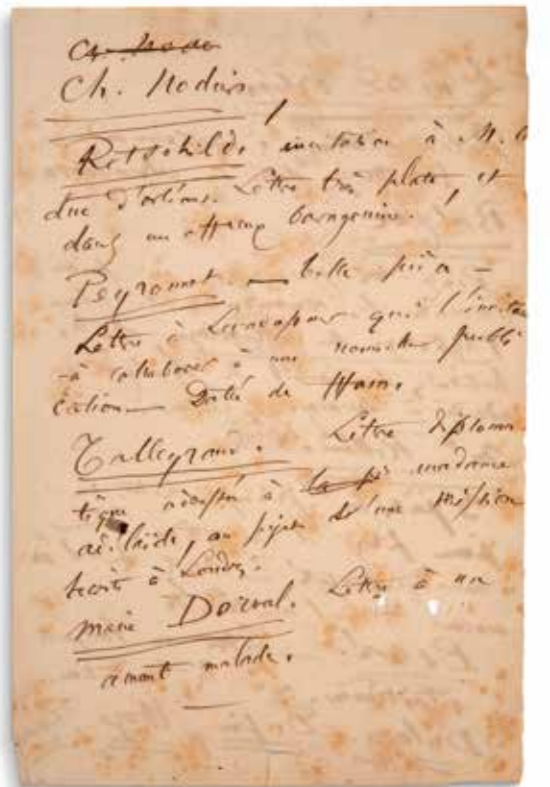 Ch. Nodier
Ch. Nodier
Rotschild. invitation à M. le
duc d'orléans. Lettre très plate, et
dans un affreux baragouin.
Peyronnet. — belle pièce —
Lettre à qui l'invitait
à collaborer à une nouvelle publi
cation — Datée de Ham.
Talleyrand. Lettre diploma
tique adressée à madame
adélaïde, au sujet d'une mission
secrète à Londres.
Marie Dorval. Lettre à un
amant malade.